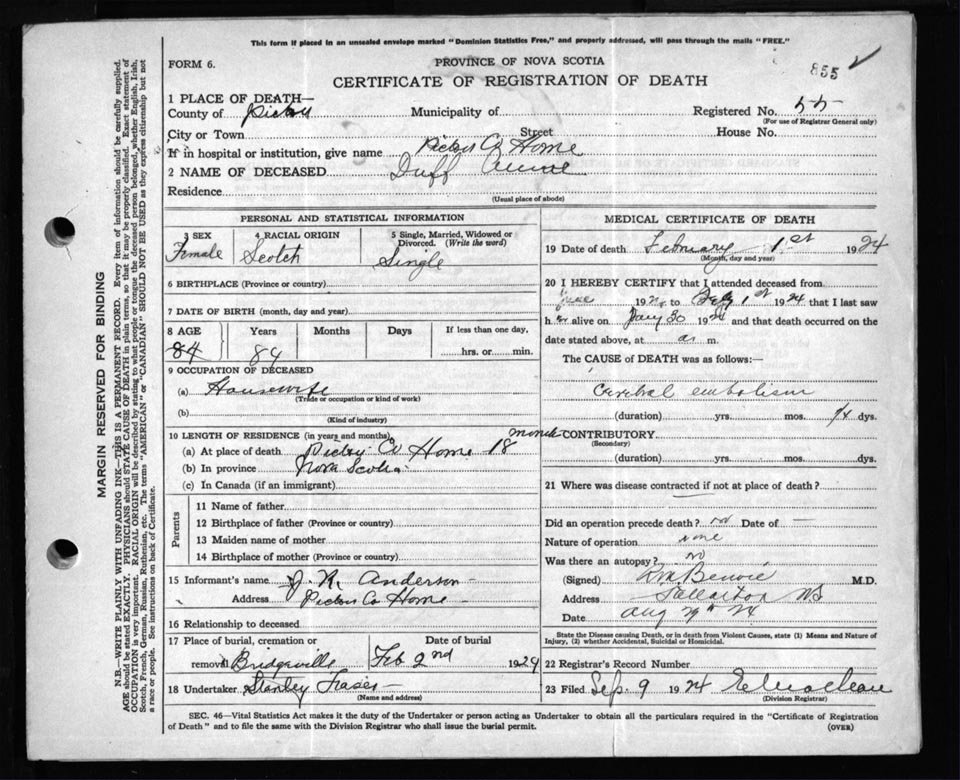 This form if placed in an unsealed envelope marked "Dominion Statistics Free," and properly addressed, will pass through the mails "FREE."
855
FORM 6.
PROVINCE OF NOVA SCOTIA
CERTIFICATE OF REGISTRATION OF DEATH
1 PLACE OF DEATH—
County of Pictou Municipality of Registered No. 55
(For use of Registrar General only)
City or Town Street House No.
If in hospital or institution, give name Pictou Co Home
2 NAME OF DECEASED Duff Annie
Residence
(Usual place of abode)
PERSONAL AND STATISTICAL INFORMATION
3 SEX 4 RACIAL ORIGIN 5 Single, Married, Widowed or Divorced. (Write the word)
Female Scotch Single
6 BIRTHPLACE (Province or country)
7 DATE OF BIRTH (month, day and year)
8 AGE Years Months Days If less than one day,
84 84 hrs. or min.
9 OCCUPATION OF DECEASED
(a) Housewife
(Trade or occupation or kind of work)
(b)
(Kind of industry)
10 LENGTH OF RESIDENCE (in years and months)
(a) At place of death Pictou Co Home 18 months
(b) In province Nova Scotia
(c) In Canada (if an immigrant)
Parents
11 Name of father
12 Birthplace of father (Province or country)
13 Maiden name of mother
14 Birthplace of mother (Province or country)
15 Informant's name J. R. Anderson
Address Pictou Co Home
16 Relationship to deceased
17 Place of burial, cremation or Date of burial
removal Bridgeville Feb 2nd 1924
18 Undertaker Stanley Fraser
(Name and address)
MEDICAL CERTIFICATE OF DEATH
19 Date of death February 1st 1924
(Month, day and year)
20 I HEREBY CERTIFY that I attended deceased from
1924 to Feby 1st 1924 that I last saw
h er alive on Jany 30 1924 and that death occurred on the
date stated above, at m.
The CAUSE OF DEATH was as follows:
Cerebral embolism
(duration) yrs. mos. dys.
CONTRIBUTORY
(Secondary)
(duration) yrs. mos. dys.
21 Where was disease contracted if not at place of death?
Did an operation precede death? no Date of —
Nature of operation none
Was there an autopsy? no
(Signed) M.D.
Address Stellarton NS
Date Aug 24
State the Disease causing Death, or in death from Violent Causes, state (1) Means and Nature of
Injury, (2) whether Accidental, Suicidal or Homicidal.
22 Registrar's Record Number
23 Filed Sep. 9 1924
(Division Registrar)
SEC. 46—Vital Statistics Act makes it the duty of the Undertaker or person acting as Undertaker to obtain all the particulars required in the "Certificate of Registration
of Death" and to file the same with the Division Registrar who shall issue the burial permit. (OVER)
MARGIN RESERVED FOR BINDING
N.B.—WRITE PLAINLY WITH UNFADING INK—THIS IS A PERMANENT RECORD. Every item of information should be carefully supplied.
AGE should be stated EXACTLY. PHYSICIANS should STATE CAUSE OF DEATH in plain terms, so that it may be properly classified. Exact statement of
OCCUPATION is very important. RACIAL ORIGIN will be described by stating to what people or tongue the deceased person belonged, whether English, Irish,
Scotch, French, German, Russian, Ruthenian, etc. The terms "AMERICAN" or "CANADIAN" SHOULD NOT BE USED as they express citizenship but not
a race or people. See instructions on back of Certificate.